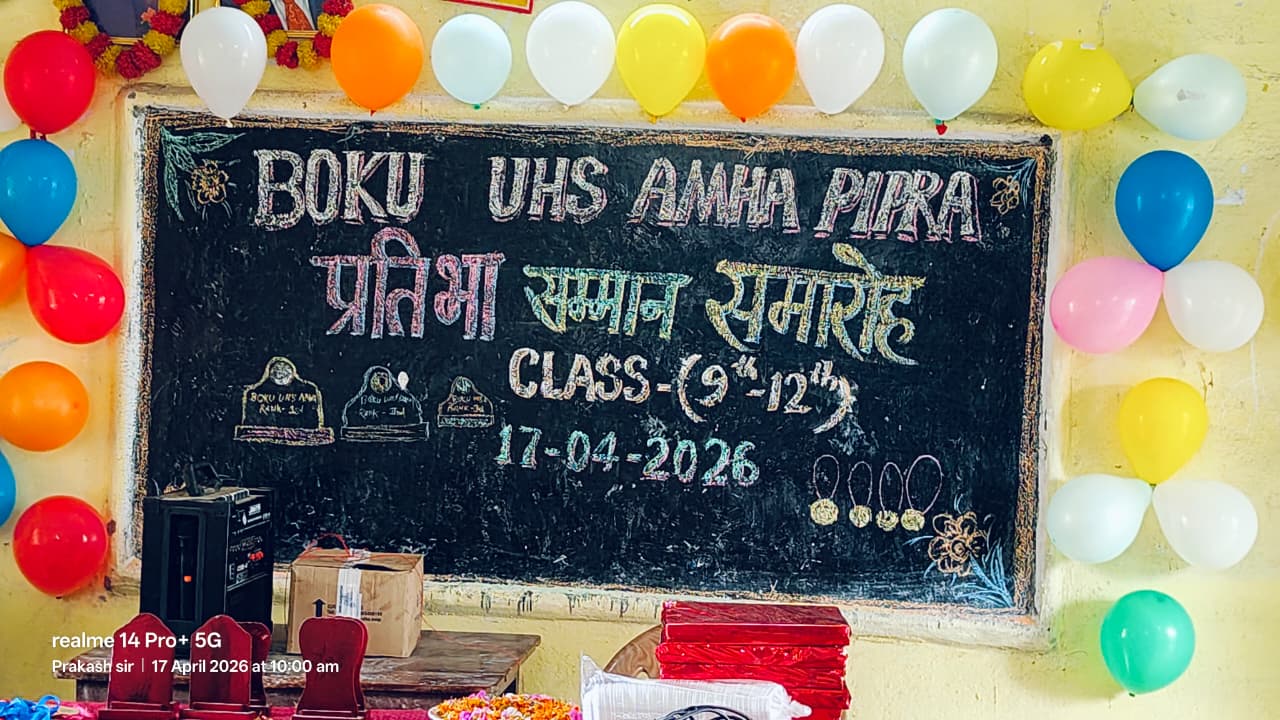 BOKU UHS AMHA PIPRA
प्रतिभा सम्मान समारोह
CLASS-(9th-12th)
17-04-2026
BOKU UHS AMHA
Rank-1st
BOKU UHS
Rank-IInd
BOKU UHS
realme 14 Pro+ 5G
Prakash sir | 17 April 2026 at 10:00 am